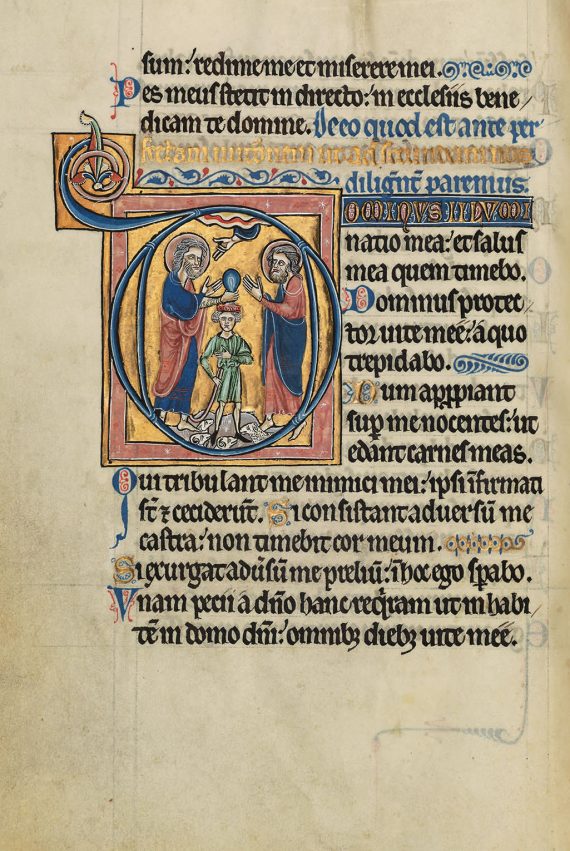 sum: redime me et miserere mei.
Pes meus stetit in directo: in ecclesiis bene
dicam te domine. Deeo quod est ante per
diligent paremus.
DOMINUS ILLUMI
natio mea: et salus
mea quem timebo.
Dominus protec
tor uite mee: a quo
trepidabo.
Dum appropiant
sup me nocentes: ut
edant carnes meas.
Qui tribulant me inimici mei: ipsi infirmati
st & ceciderut. Si consistant aduersu me
castra: non timebit cor meum.
Si exurgat adusu me preliu: in hoc ego spabo.
Vnam pecii a dno hanc reqram ut in habi
tem in domo dni: omnibz diebz uite mee.